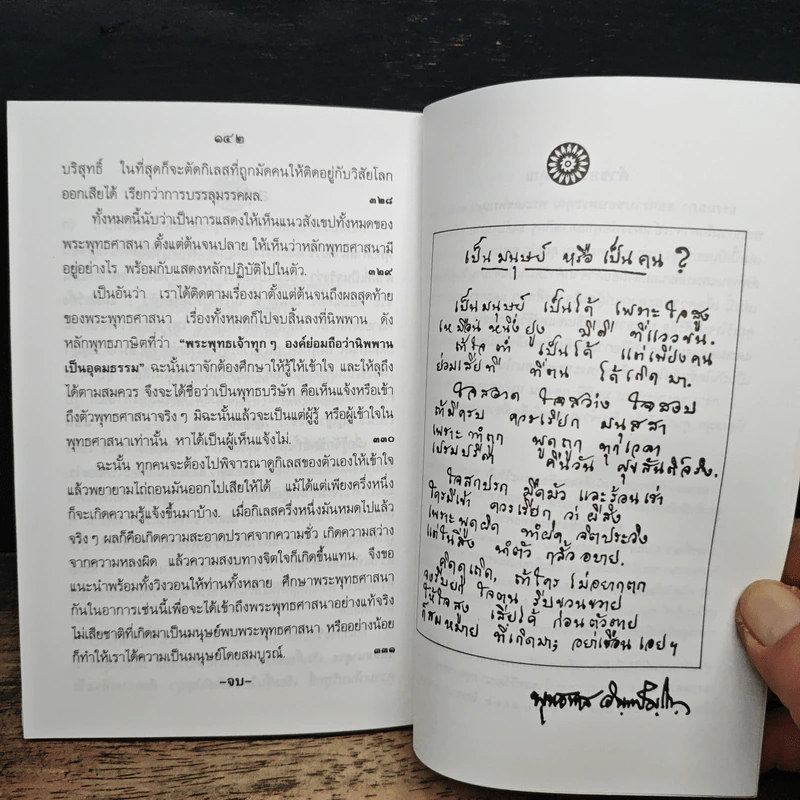 ๑๔๒
บริสุทธิ์ ในที่สุดก็จะตัดกิเลสที่ผูกมัดคนให้ติดอยู่กับวิสัยโลก
ออกเสียได้ เรียกว่าการบรรลุมรรคผล. ๓๒๘
ทั้งหมดนี้นับว่าเป็นการแสดงให้เห็นแนวสังเขปทั้งหมดของ
พระพุทธศาสนา ตั้งแต่ต้นจนปลาย ให้เห็นว่าหลักพุทธศาสนามี
อยู่อย่างไร พร้อมกับแสดงหลักปฏิบัติไปในตัว. ๓๒๙
เป็นอันว่า เราได้ติดตามเรื่องมาตั้งแต่ต้นจนถึงผลสุดท้าย
ของพระพุทธศาสนา เรื่องทั้งหมดก็ไปจบสิ้นลงที่นิพพาน ดัง
หลักพุทธภาษิตที่ว่า “พระพุทธเจ้าทุกๆ องค์ย่อมถือว่านิพพาน
เป็นอุดมธรรม” ฉะนั้นเราจักต้องศึกษาให้รู้ให้เข้าใจ และให้ลุถึง
ได้ตามสมควร จึงจะได้ชื่อว่าเป็นพุทธบริษัท คือเห็นแจ้งหรือเข้า
ถึงตัวพุทธศาสนาจริงๆ มิฉะนั้นแล้วจะเป็นแต่ผู้รู้ หรือผู้เข้าใจใน
พุทธศาสนาเท่านั้น หาได้เป็นผู้เห็นแจ้งไม่. ๓๓๐
ฉะนั้น ทุกคนจะต้องไปพิจารณาดูกิเลสของตัวเองให้เข้าใจ
แล้วพยายามไถ่ถอนมันออกไปเสียให้ได้ แม้ได้แต่เพียงครึ่งหนึ่ง
ก็จะเกิดความรู้แจ้งขึ้นมาบ้าง. เมื่อกิเลสครึ่งหนึ่งมันหมดไปแล้ว
จริงๆ ผลก็คือเกิดความสะอาดปราศจากความชั่ว เกิดความสว่าง
จากความหลงผิด แล้วความสงบทางจิตใจก็เกิดขึ้นแทน. จึงขอ
แนะนำพร้อมทั้งวิงวอนให้ท่านทั้งหลาย ศึกษาพระพุทธศาสนา
กันในอาการเช่นนี้เพื่อจะได้เข้าถึงพระพุทธศาสนาอย่างแท้จริง
ไม่เสียชาติที่เกิดมาเป็นมนุษย์พบพระพุทธศาสนา หรืออย่างน้อย
ก็ทำให้เราได้ความเป็นมนุษย์โดยสมบูรณ์. ๓๓๑
-จบ-
เป็นมนุษย์ หรือ เป็นคน ?
เป็นมนุษย์ เป็นได้ เพราะใจสูง
เหมือนหนึ่งยูง มีดี ที่แววขน.
ถ้าใจต่ำ เป็นได้ แต่เพียงคน
ย่อมเสียที ที่ตน ได้เกิดมา.
ใจสอาด ใจสว่าง ใจสงบ
ถ้ามีครบ ควรเรียก มนุสสา
เพราะทำถูก พูดถูก ทุกเวลา
เปรมปรีดา คืนวัน สุขสันต์จริง.
ใจสกปรก มืดมัว และร้อนเร่า
ใครมีเข้า ควรเรียก ว่าผีสิง
เพราะพูดผิด ทำผิด จิตประวิง
แต่ในสิ่ง ทำตัว กลั้วอบาย.
คิดดูเถิด, ถ้าใคร ไม่อยากตก
จงรีบยก ใจตน รีบขวนขวาย
ให้ใจสูง เสียได้ ก่อนตัวตาย
ก็สมหมาย ที่เกิดมา; อย่าเชือนเอยฯ
พุทธทาส อินทปัญโญ